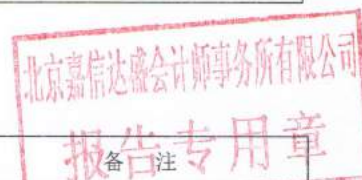 北京嘉信达盛会计师事务所有限公司
报告专用章
备 注